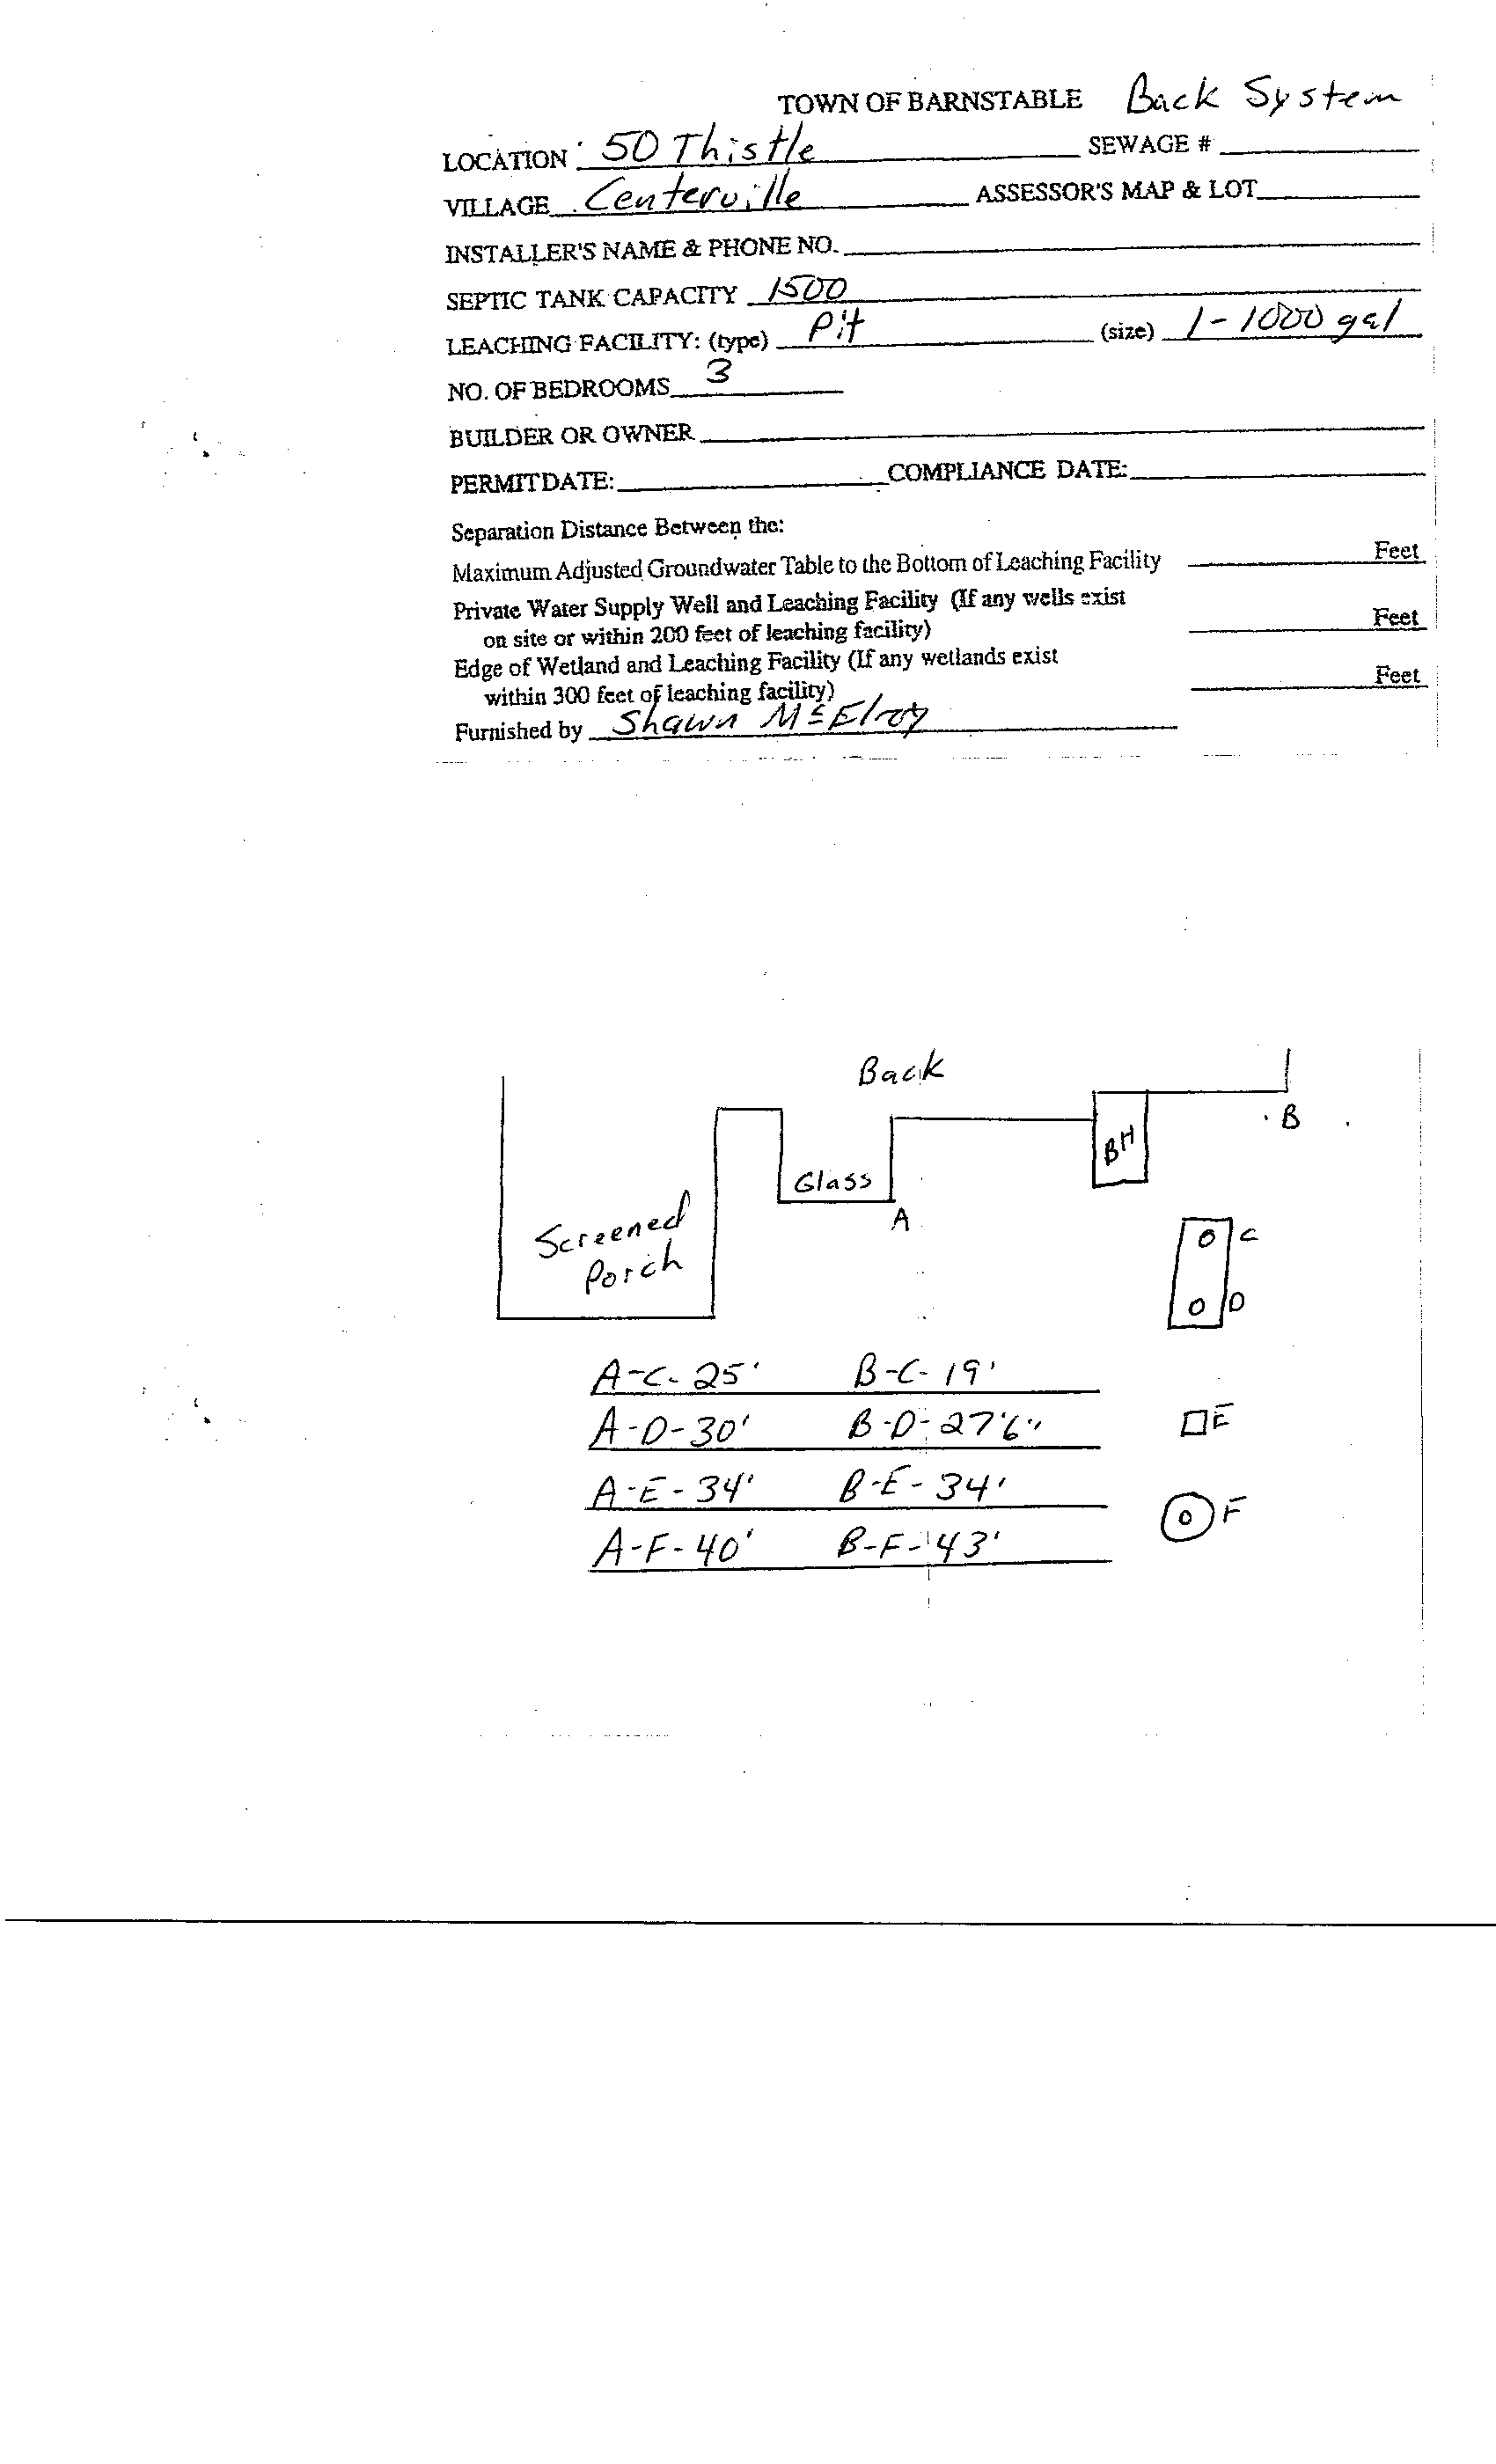 TOWN OF BARNSTABLE Back System
LOCATION 50 Thistle SEWAGE #
VILLAGE Centerville ASSESSOR'S MAP & LOT
INSTALLER'S NAME & PHONE NO.
SEPTIC TANK CAPACITY 1500
LEACHING FACILITY: (type) Pit (size) 1-1000 gal
NO. OF BEDROOMS 3
BUILDER OR OWNER
PERMITDATE: COMPLIANCE DATE:
Separation Distance Between the:
Maximum Adjusted Groundwater Table to the Bottom of Leaching Facility Feet
Private Water Supply Well and Leaching Facility (If any wells exist
on site or within 200 feet of leaching facility) Feet
Edge of Wetland and Leaching Facility (If any wetlands exist
within 300 feet of leaching facility) Feet
Furnished by Shawn McElroy
Back
B
BH
Glass
A
Screened
Porch
C
D
A-C- 25' B-C- 19'
A-D-30' B-D- 27'6"
E
A-E-34' B-E-34'
F
A-F-40' B-F-43'